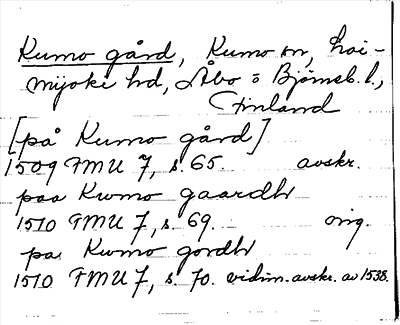 Kumo gård, Kumo sn, Loi-
mijoki hd, Åbo o Björneb. l.,
Finland
[på Kumo gård]
1509 FMU 7, s. 65. avskr.
paa Kwmo gaardh
1510 FMU 7, s. 69. orig.
pa Kumo gordh
1510 FMU 7, s. 70. vidim. avskr. av 1538.